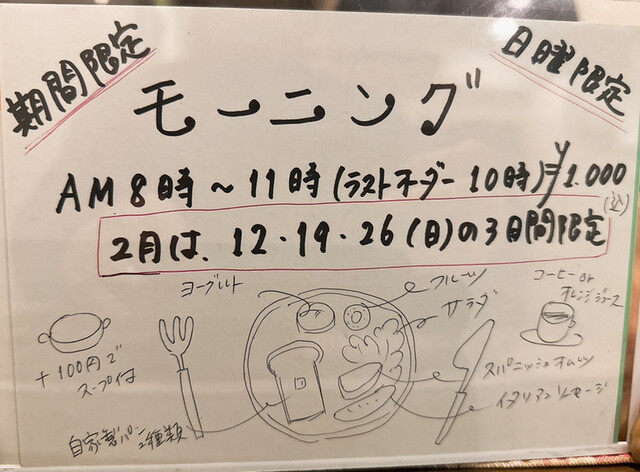 期間限定
日曜限定
モーニング
AM8時～11時(ラストオーダー10時)¥1.000
(込)
2月は、12・19・26(日)の3日間限定
ヨーグルト
フルーツ
サラダ
コーヒーor
オレンジジュース
+100円で
スープ付
スパニッシュオムレツ
イタリアンソーセージ
自家製パン
2種類